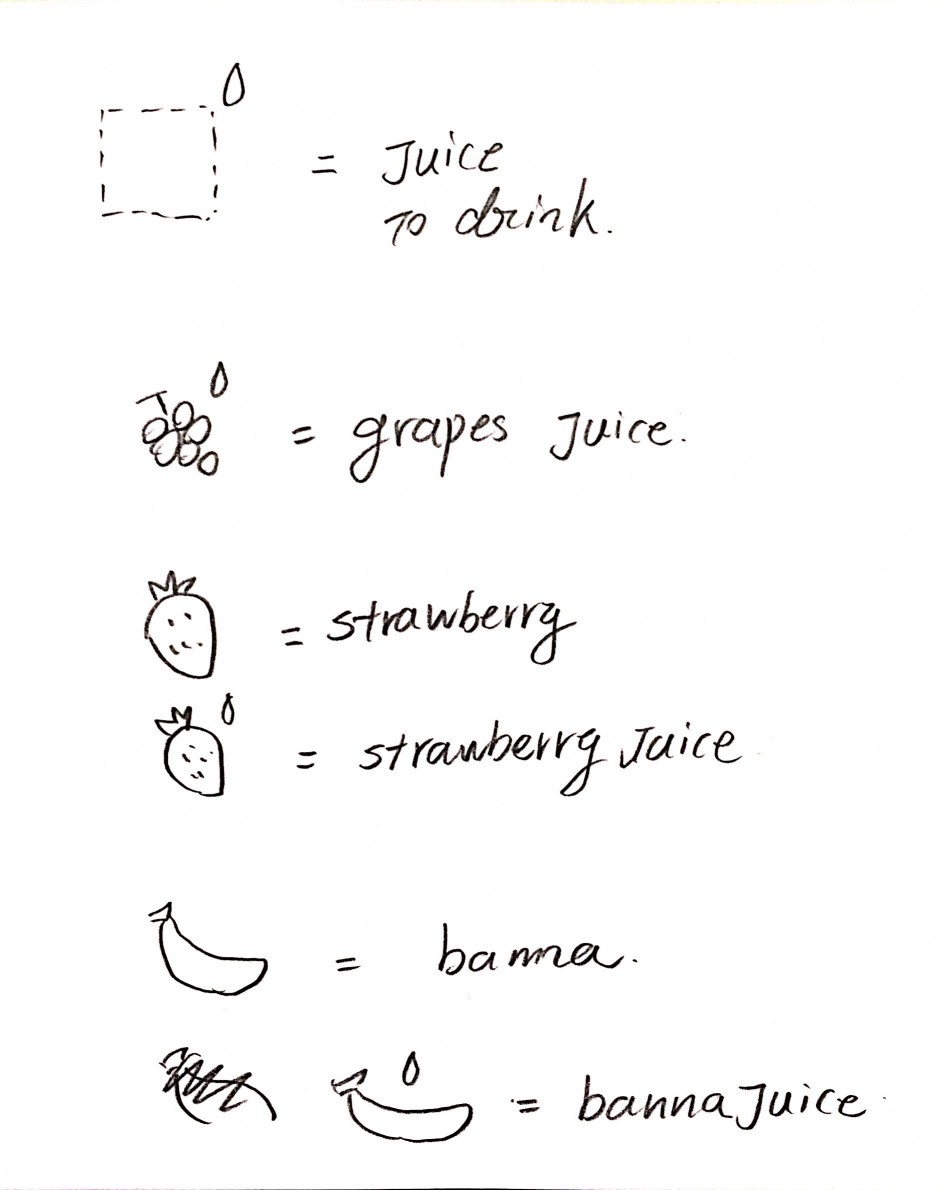 = Juice
To drink.
= grapes Juice.
= strawberry
= strawberry Juice
= banna.
= banna Juice